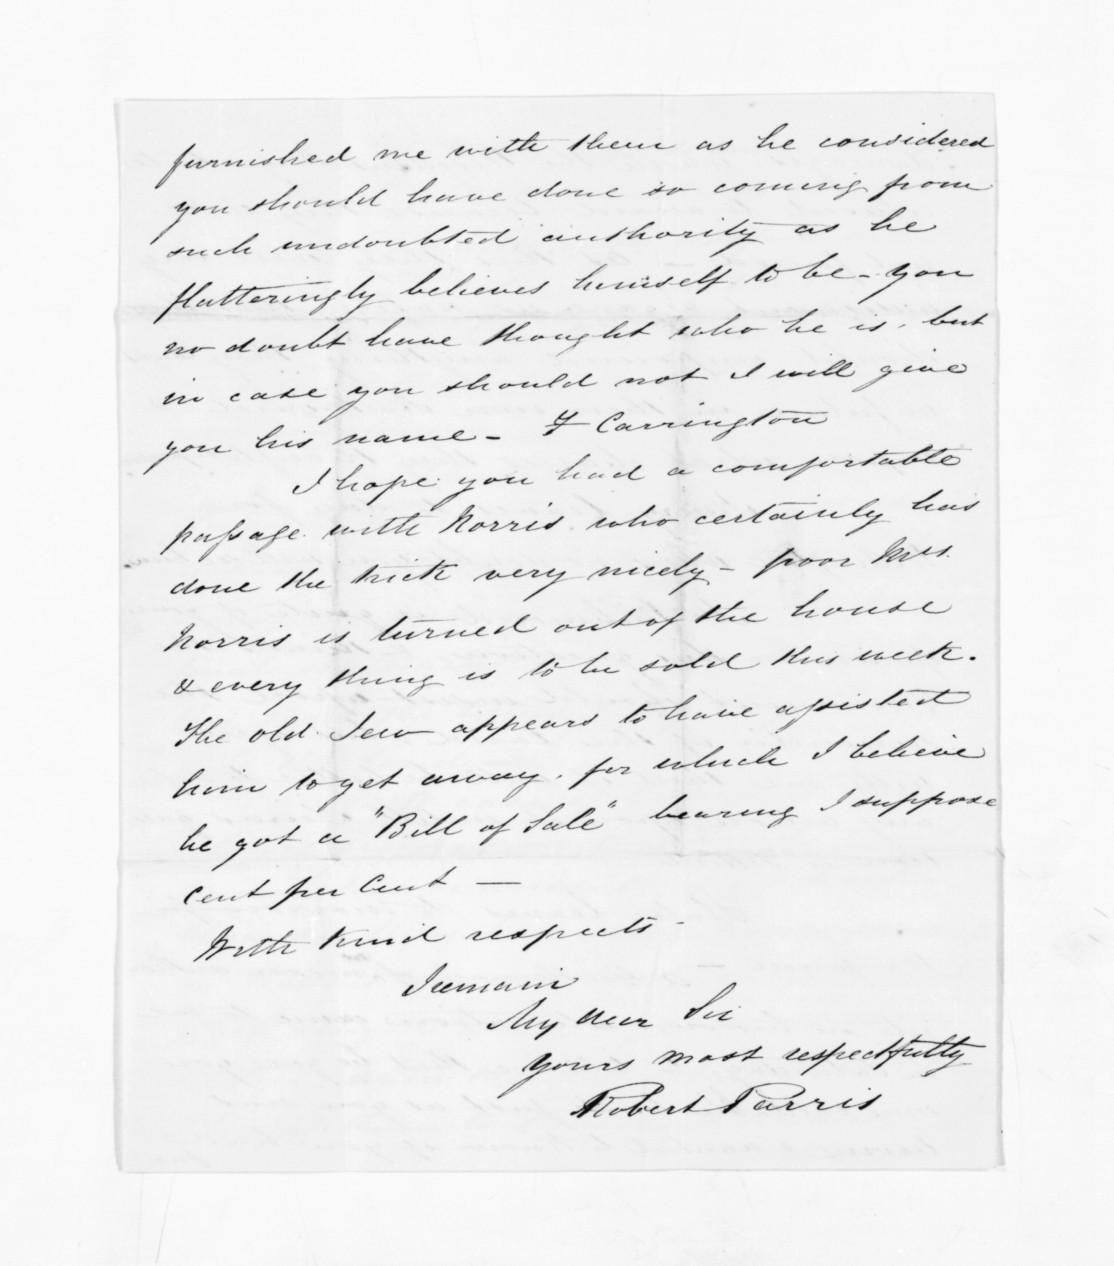 furnished me with them as he considered
you should have done so coming from
such undoubted authority as he
flatteringly believes himself to be - you
no doubt have thought who he is, but
in case you should not I will give
you his name - F Carrington
I hope you had a comfortable
passage with Norris who certainly has
done the trick very nicely - poor Mrs.
Norris is turned out of the house
& every thing is to be sold this week.
The old Jew appears to have assisted
him to get away, for which I believe
he got a "Bill of Sale" bearing I suppose
cent per cent —
With kind respects
I remain
My dear Sir
yours most respectfully
Robert Parris